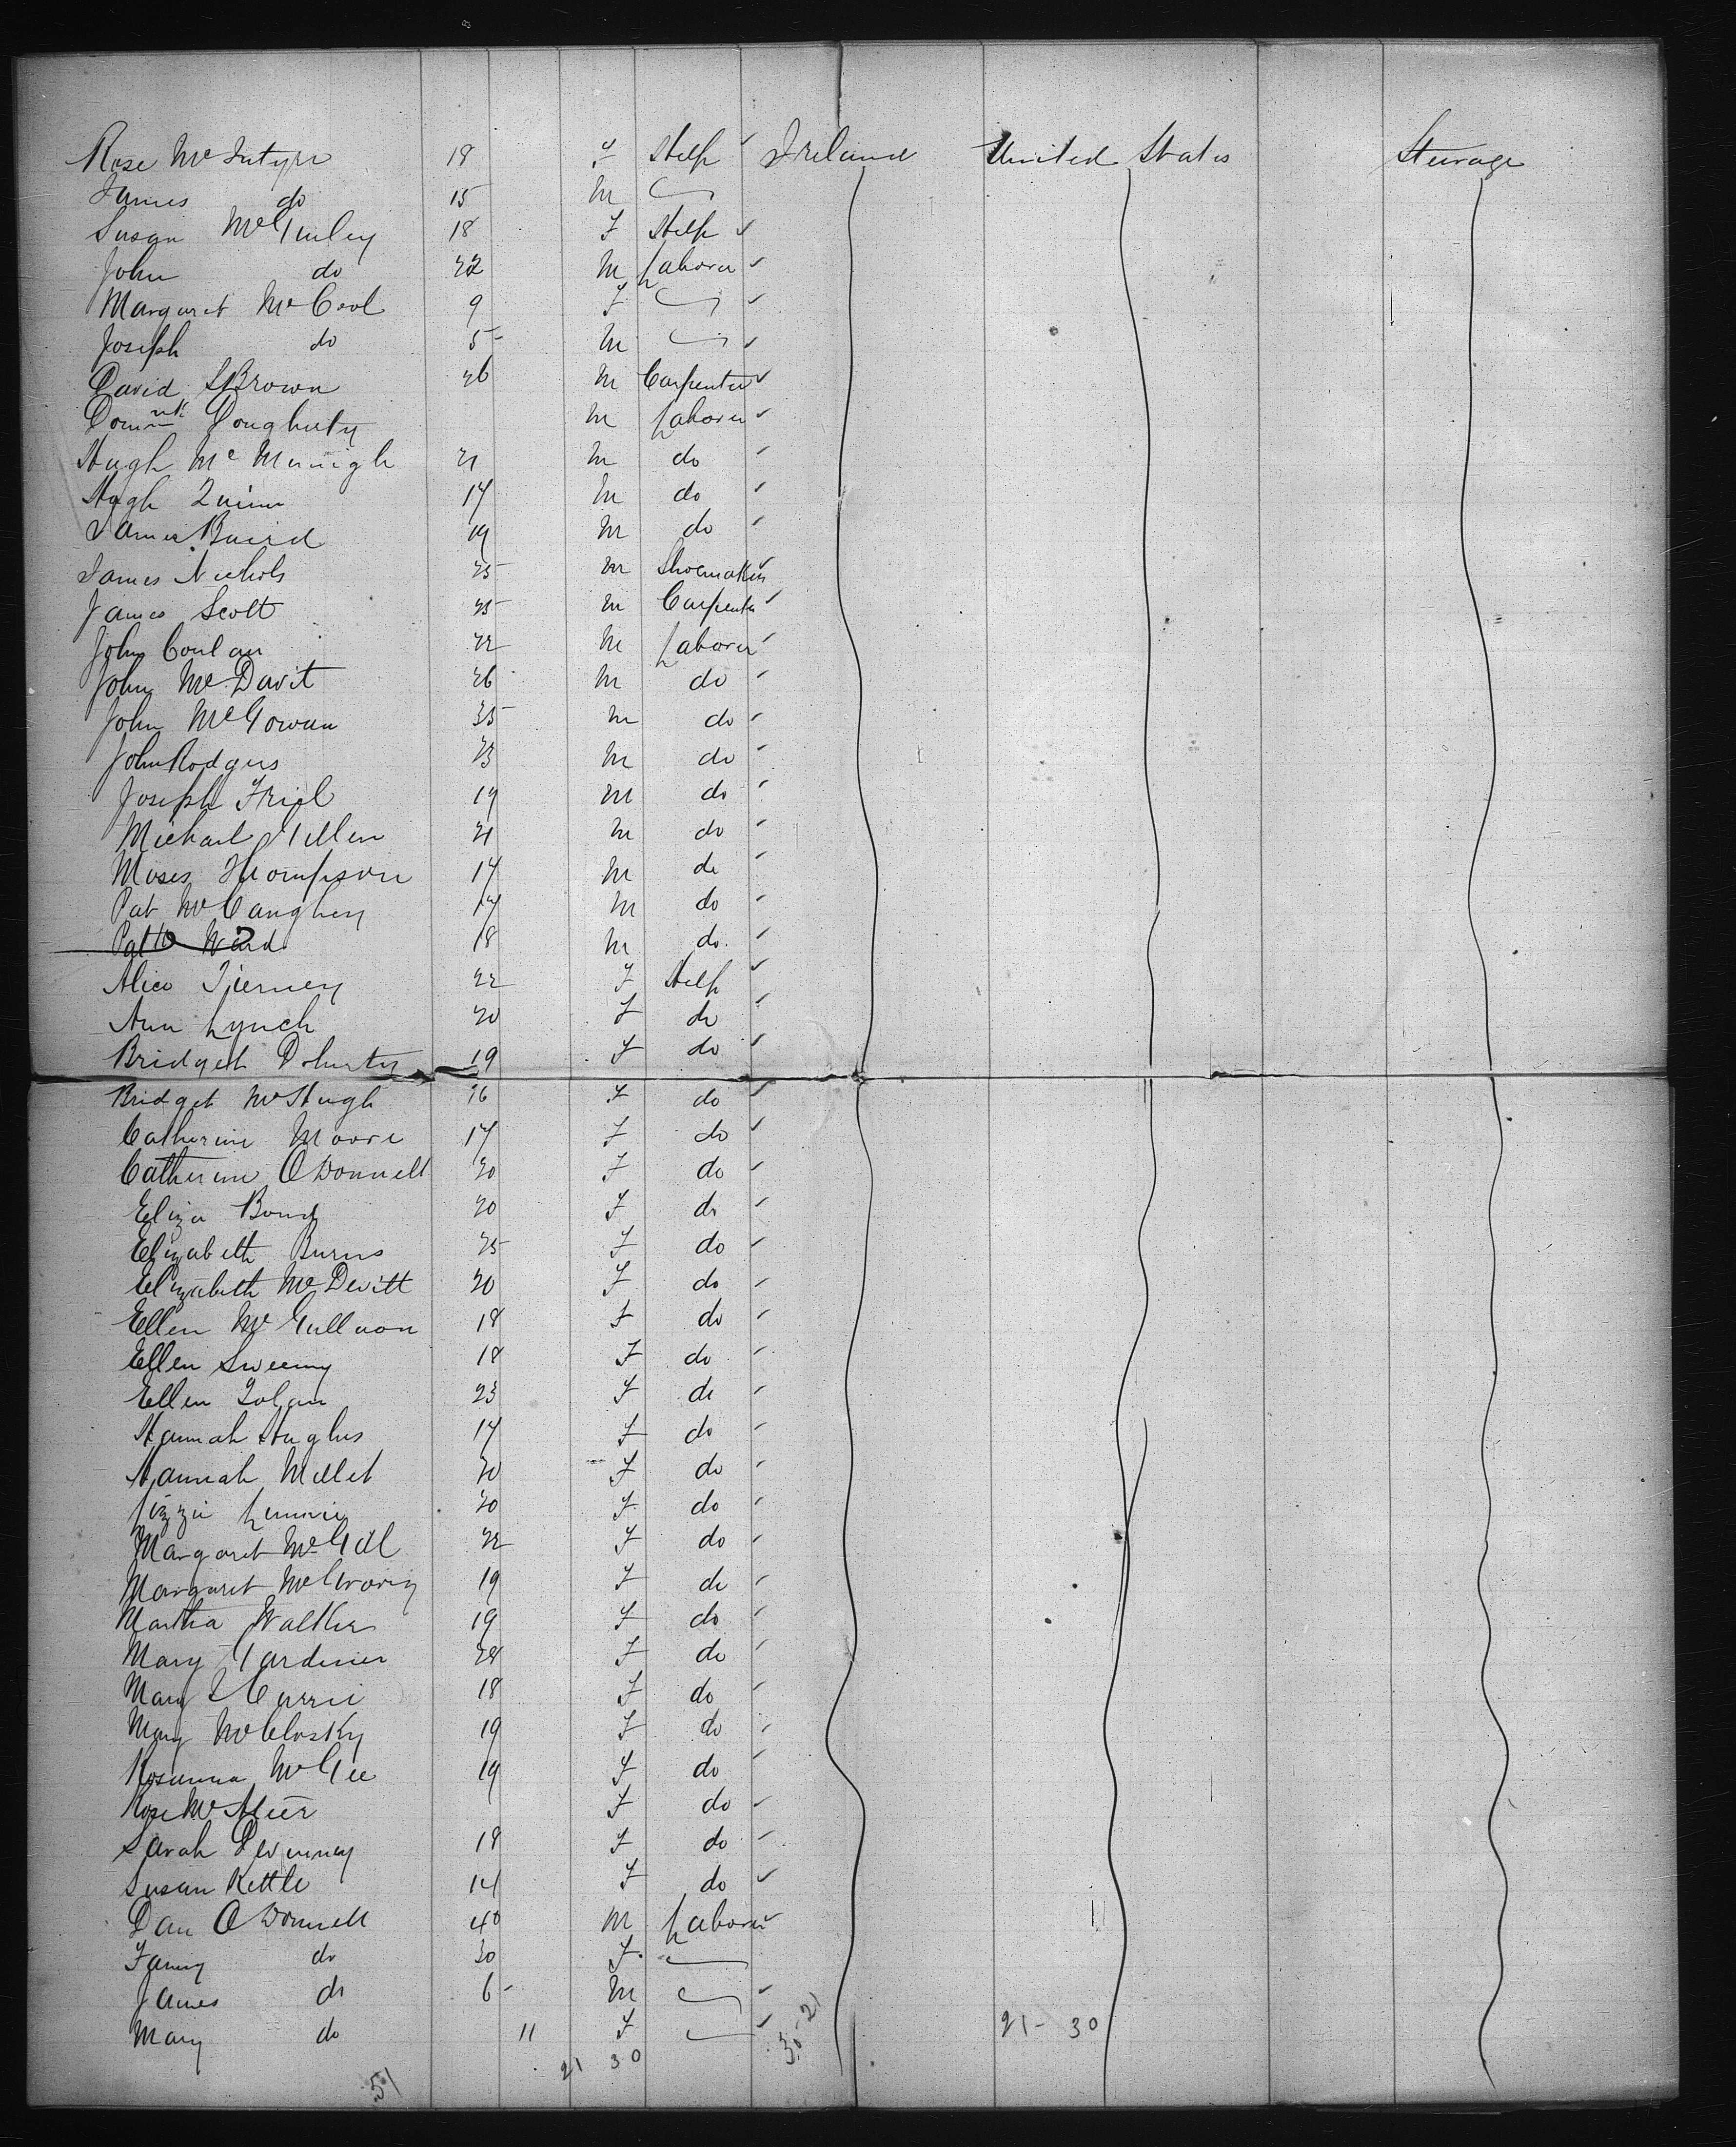 Rose McIntyre 18 F Help Ireland United States Steerage
James do 15 M
Susan McGinley 18 F Help
John do 22 M Laborer
Margaret McCool 9 F
Joseph do 5 M
David Brown 26 M Carpenter
Domnk Dougherty M Laborer
Hugh McMenigle 21 M do
Hugh Quinn 17 M do
James Baird 19 M do
James Nichols 25 M Shoemaker
James Scott 25 M Carpenter
John Conlan 22 M Laborer
John McDavit 26 M do
John McGowan 35 M do
John Rodgers 23 M do
Joseph Friel 19 M do
Michael Gillen 21 M do
Moses Thompson 17 M do
Pat McCaughey 17 M do
Patk Ward 18 M do
Alice Tierney 22 F Help
Ann Lynch 20 F do
Bridget Doherty 19 F do
Bridget McHugh 16 F do
Catherine Moore 17 F do
Catherine ODonnell 20 F do
Eliza Bond 20 F do
Elizabeth Burns 25 F do
Elizabeth McDevitt 20 F do
Ellen 18 F do
Ellen Sweeny 18 F do
Ellen 23 F do
Hannah Hughes 17 F do
Hannah Millet 20 F do
Lizzie 20 F do
Margaret McGill 22 F do
Margaret 19 F do
Martha Walker 19 F do
Mary Gardiner 28 F do
Mary Currie 18 F do
Mary McClosky 19 F do
Rosanna McGee 19 F do
Rose McAleer F do
Sarah 18 F do
Susan Kettle 14 F do
Dan ODonnell 40 M Laborer
Fanny do 30 F
James do 6 M
Mary do 11 F 30-21 21-30
51 21 30